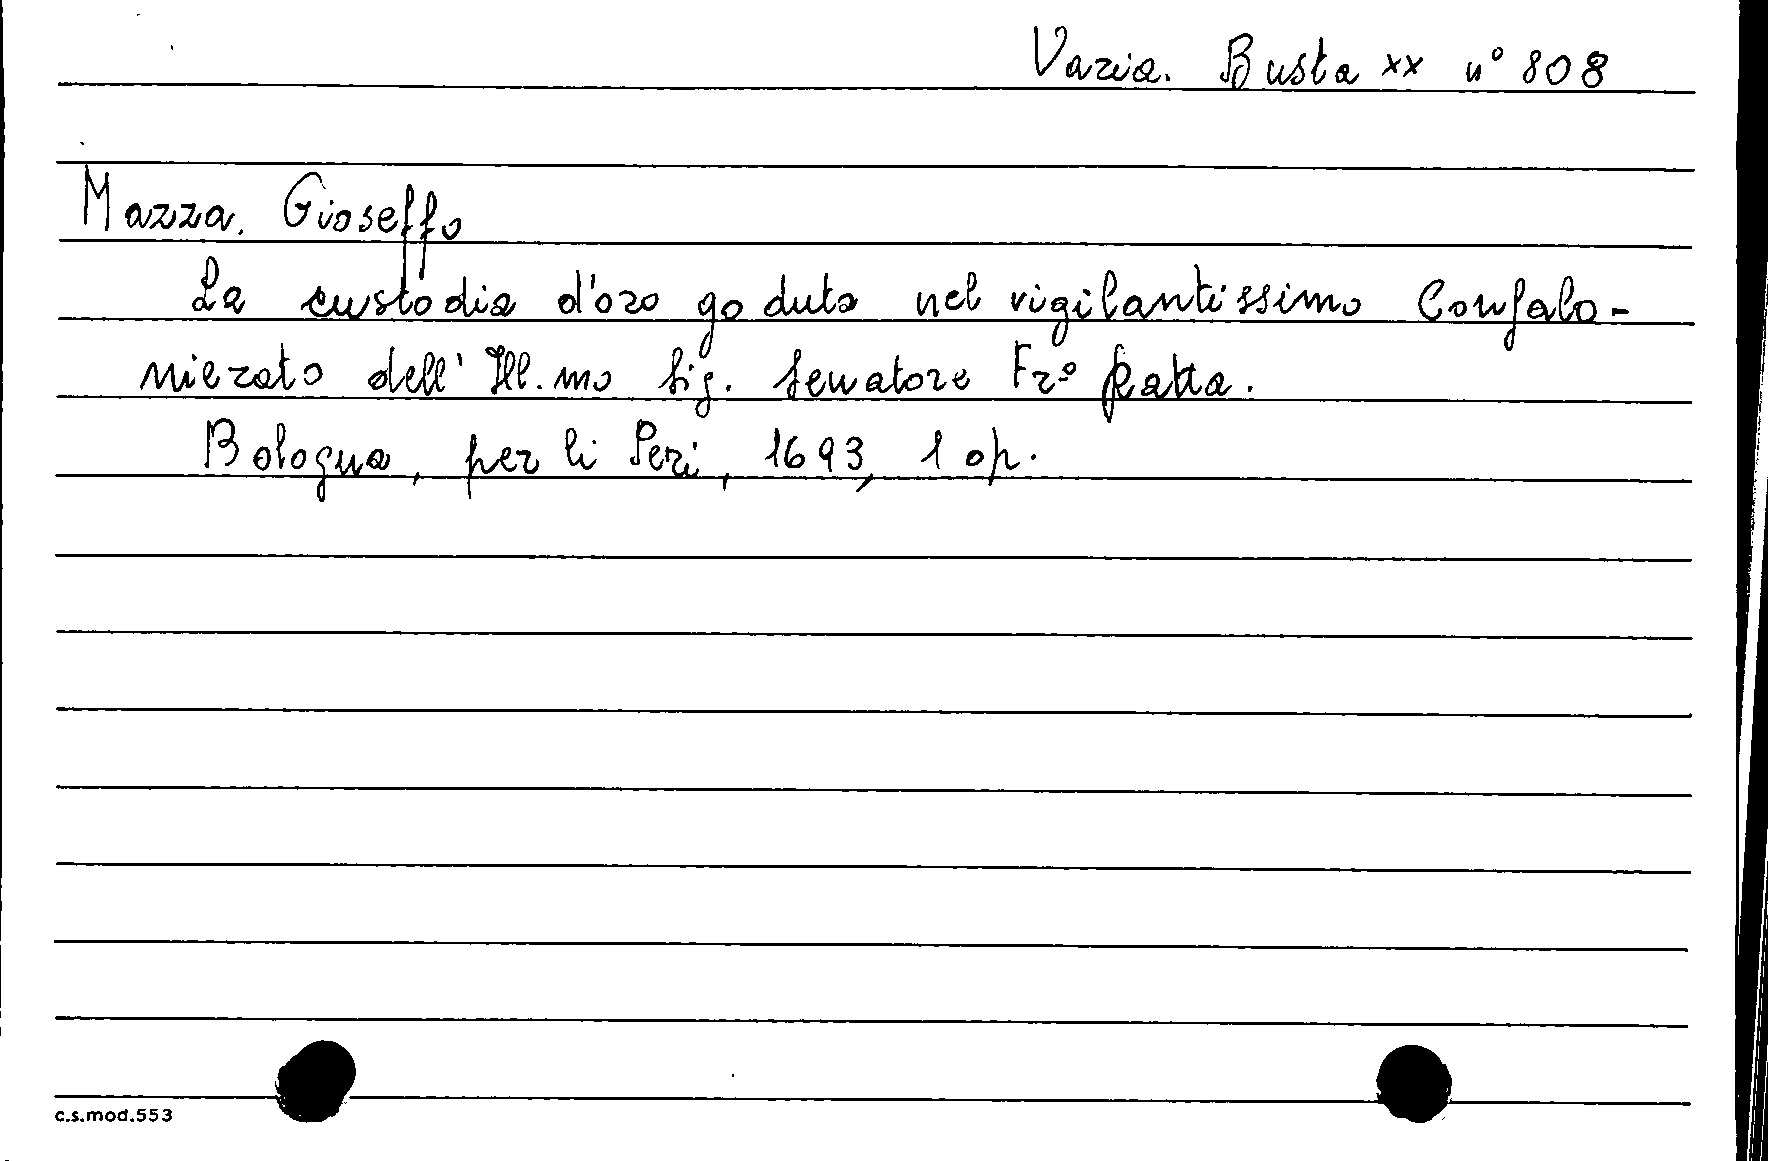 Varia. Busta xx n° 808
Mazza. Gioseffo
La custodia d'oro goduta nel vigilantissimo Confalo-
nierato dell' Ill.mo Sig. Senatore Fr.º Ratta.
Bologna, per li Peri, 1693, 1 op.
c.s.mod.553